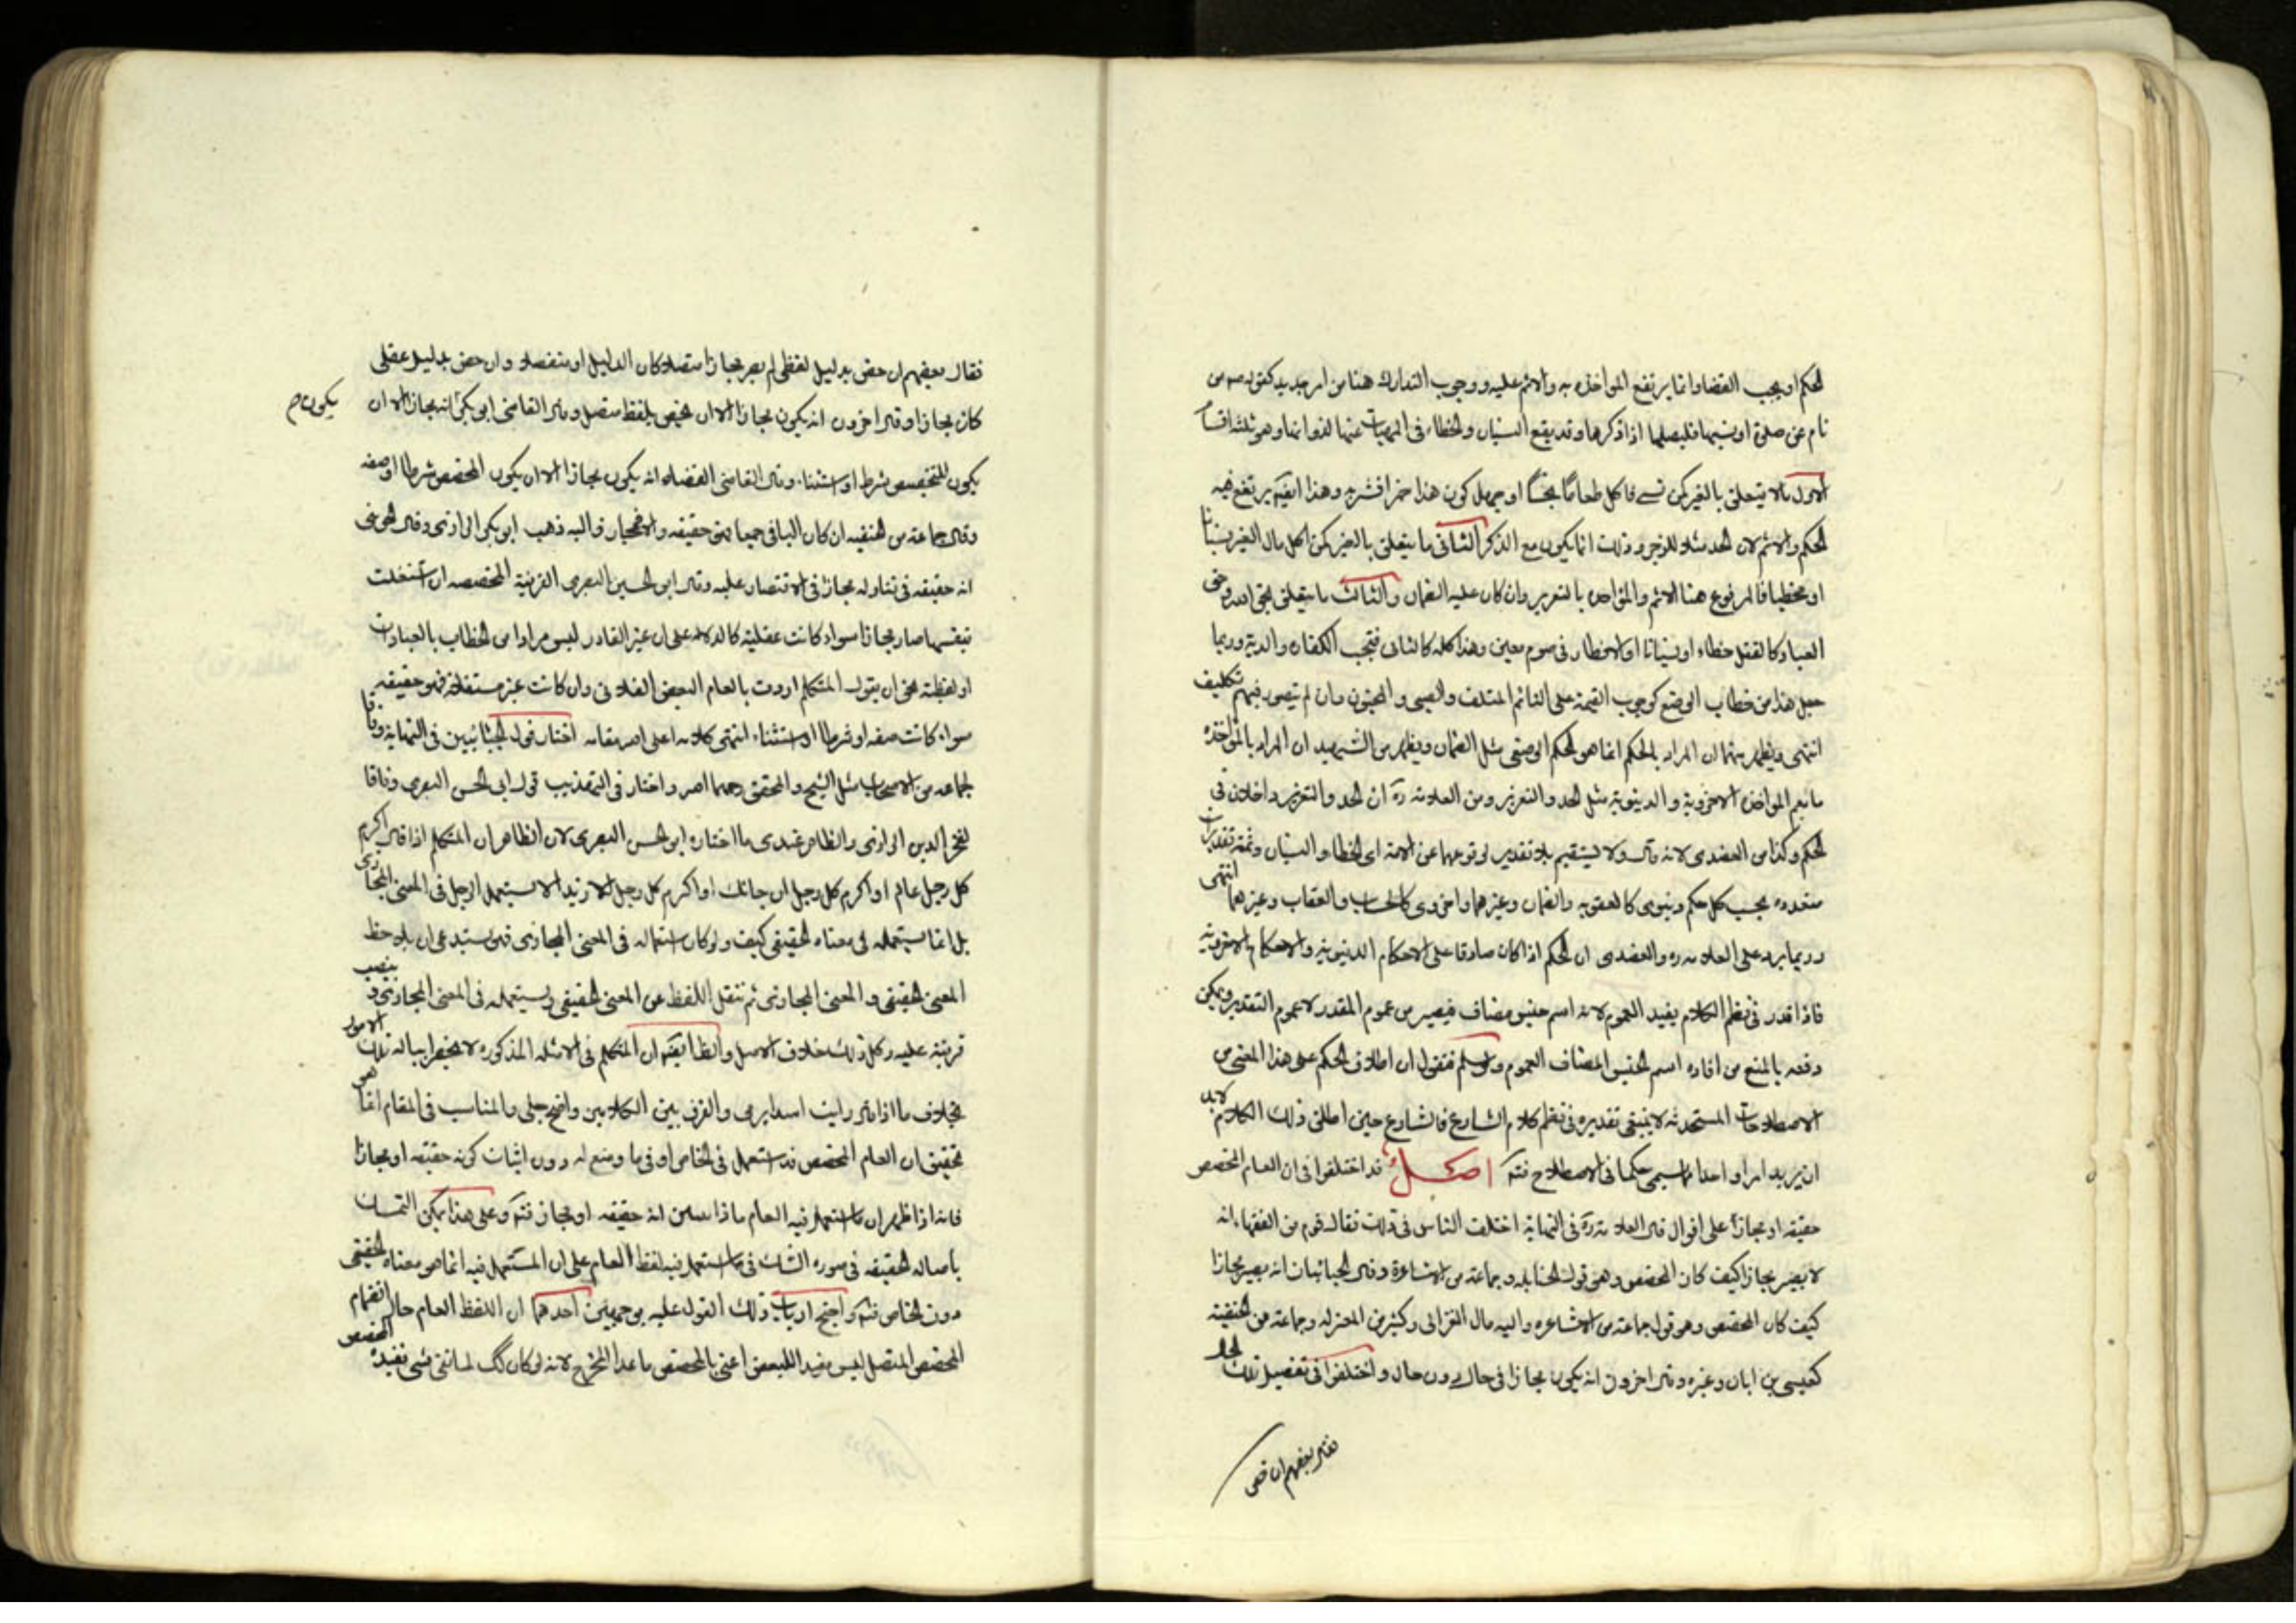 الحكم او يجب القضاء وانما يرتفع المؤاخذه به والاثم عليه ووجوب التدارك هنا من امر جديد كقوله ص من
نام عن صلوة او نسيها فليصلها اذا ذكرها وقد يقع النسيان والخطاء فى المنهيات عنها لذواتها وهو ثلثة اقسام
الاول ما لا يتعلق بالغير كمن نسى فاكل طعاما نجسا او جهل كون هذا خمرا فشربه وهذا ايضا يرتفع فيه
الحكم والاثم لان الحد مثلا للزجر وذلك انما يكون مع الذكر الثانى ما يتعلق بالغير كمن اكل مال الغير نسيانا
او مخطيا فالمرفوع هنا الاثم والمؤاخذه بالتعزير وان كان عليه الضمان والثالث ما يتعلق بحق الله وحق
العباد كالقتل خطاء او نسيانا او الافطار فى صوم معين وهذا كله كالثانى فتجب الكفاره والدية وربما
جعل هذا من خطاب الوضع كوجوب القيمة على النائم المتلف والصبى والمجنون وان لم يتصور فيهم تكليف
انتهى ويظهر منهما ان المراد بالحكم انما هو الحكم الوضعى مثل الضمان ويظهر من الشهيد ان المراد بالمؤاخذه
ما يعم المؤاخذه الاخروية والدنيوية مثل الحد والتعزير ومن العلامه ره ان الحد والتعزير داخلان فى
الحكم وكذا من العضدى لانه قال ولا يستقيم بلا تقدير لوقوعهما عن الامة اى الخطا والنسيان وثمة تقديرات
متعدده بحسب كل حكم دنيوى كالعقوبه والضمان وغيرهما واخروى كالحساب والعقاب وغيرهما انتهى
وربما يرد على العلامه ره والعضدى ان الحكم اذا كان صادقا على الاحكام الدنيويه والاحكام الاخرويه
فاذا قدر فى نظم الكلام يفيد العموم لانه اسم جنس مضاف فيصير من عموم المقدر لا عموم التقدير ويمكن
دفعه بالمنع من افاده اسم الجنس المضاف العموم ولو سلم فنقول ان اطلاق الحكم على هذا المعنى من
الاصطلاحات المستحدثه لا ينبغى تقديره فى نظم كلام الشارع فالشارع حين اطلق ذلك الكلام لابد
ان يريد امرا واحدا مما يسمى حكما فى الاصطلاح فتم اصل قد اختلفوا فى ان العام المخصص
حقيقه او مجازا على اقوال قال العلامه ره فى النهاية اختلف الناس فى ذلك فقال قوم من الفقهاء انه
لا يصير مجازا كيف كان المخصص وهو قول الحنابله وجماعة من الاشاعرة وقال الجبائيان انه يصير مجازا
كيف كان المخصص وهو قول جماعة من الاشاعره واليه مال الغزالى وكثير من المعتزله وجماعة من الحنفية
كعيسى بن ابان وغيره وقال اخرون انه يكون مجازا فى حال دون حال واختلفوا فى تفصيل تلك الحال
فقال بعضهم ان خص
فقال بعضهم ان خص بدليل لفظى لم يصر مجازا متصلا كان الدليل او منفصلا وان خص بدليل عقلى
كان مجازا وقال اخرون انه يكون مجازا الا ان يخص بلفظ متصل وقال القاضى ابو بكر انه مجاز الا ان
يكون م
يكون المخصص شرط او استثناء وقال القاضى القضاه انه يكون مجازا الا ان يكون المخصص شرطا او صفه
وقال جماعة من الحنفيه ان كان الباقى جمعا فهو حقيقه والا فمجاز واليه ذهب ابو بكر الرازى وقال الجوينى
انه حقيقه فى تناوله مجاز فى الاقتصار عليه وقال ابو الحسين البصرى القرينة المخصصه ان استقلت
بنفسها صار مجازا سواء كانت عقلية كالدلاله على ان غير القادر ليس مرادا من الخطاب بالعبادات
او لفظية نحو ان يقول المتكلم اردت بالعام البعض الفلانى وان كانت غير مستقله فهو حقيقه
سواء كانت صفه او شرطا او استثناء انتهى كلامه اعلى الله مقامه اختار قول الجبائيين فى النهاية وفاقا
لجماعه من الاصحاب مثل الشيخ والمحقق رحمهما الله واختار فى التهذيب قول ابى الحسين البصرى وفاقا
لفخر الدين الرازى والظاهر عندى ما اختاره ابو الحسين البصرى لان الظاهر ان المتكلم اذا قال اكرم
كل رجل عالم او اكرم كل رجل ان جائك او اكرم كل رجل الا زيدا لا يستعمل الرجل فى المعنى المجازى
بل انما يستعمله فى معناه الحقيقى كيف ولو كان استعماله فى المعنى المجازى فهو يستدعى ان يلاحظ
المعنى الحقيقى والمعنى المجازى ثم ينتقل اللفظ عن المعنى الحقيقى ويستعمله فى المعنى المجازى وينصب
قرينة عليه وكل ذلك خلاف الاصل والظ ايضا ان المتكلم فى الامثله المذكوره لا يخطر بباله تلك الامور
بخلاف ما اذا قال رايت اسدا يرمى والفرق بين الكلامين واضح جلى والمناسب فى المقام انما هو
تحقيق ان العام المخصص قد استعمل فى الخاص او فى ما وضع له دون اثبات كونه حقيقه او مجازا
فانه اذا ظهر ان ما استعمل فيه العام ماذا تبين انه حقيقه او مجاز فتم وعلى هذا يمكن التمسك
باصاله الحقيقه فى صوره الشك فى ما استعمل فيه لفظ العام على ان المستعمل فيه انما هو معناه الحقيقى
دون الخاص فتم واحتج ارباب ذلك القول عليه بوجهين احدهما ان اللفظ العام حال انضمام
المخصص المتصل ليس مفيدا للبعض اعنى بالمخصص ما عدا المخرج لانه لو كان كك لما بقى شى تفيده المخصص